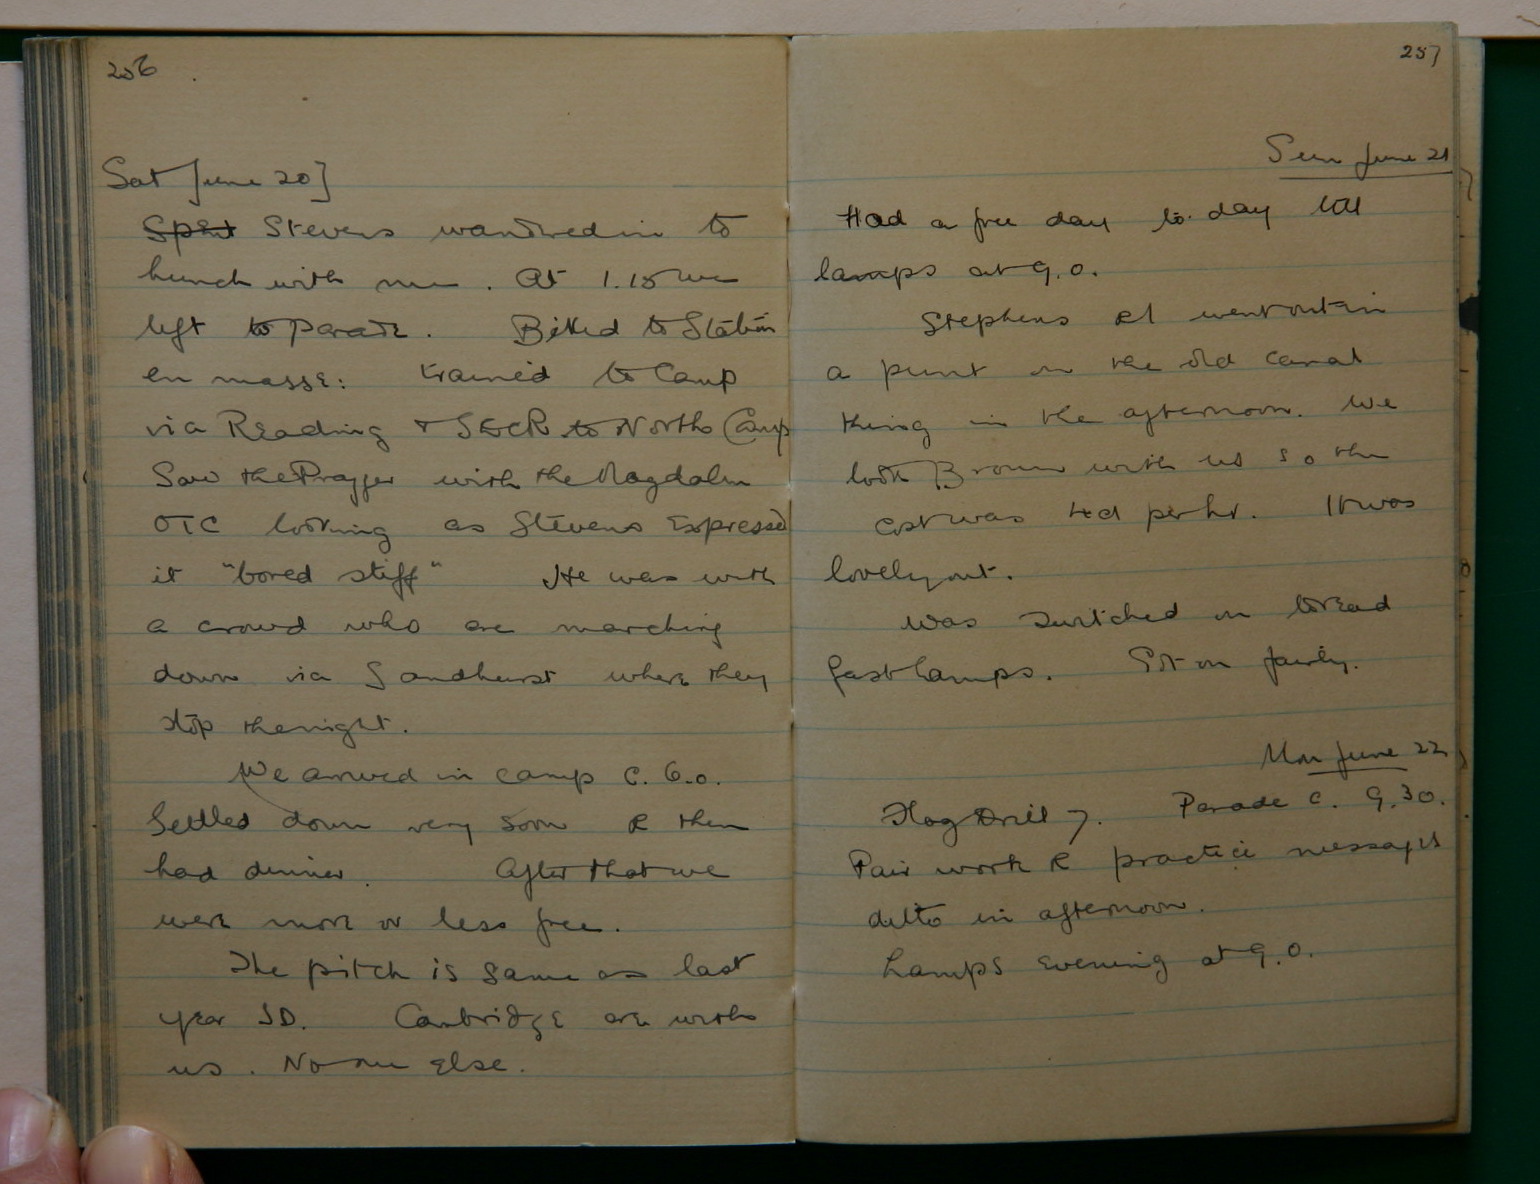 256
Sat June 20]
Spent Stevens wandered in to
lunch with me. At 1.15 we
left to parade. Biked to Station
en masse: trained to Camp
via Reading & SECR to North Camp
Saw the Pragger with the Magdalen
OTC looking as Stevens expressed
it "bored stiff" He was with
a crowd who are marching
down via Sandhurst where they
stop the night.
We arrived in camp c. 6.0.
Settled down very soon & then
had dinner. After that we
were more or less free.
The pitch is same as last
year SD. Cambridge are with
us. No one else.
257
Sun June 21
Had a free day to-day till
lamps at 9.0.
Stephens & I went out in
a punt on the old canal
thing in the afternoon. We
took Brown with us so the
cost was 4d per hr. It was
lovely out.
Was switched on to read
fast lamps. Got on fairly.
Mon June 22
Flag Drill 7. Parade c. 9.30.
Pair work & practice messages
ditto in afternoon.
Lamps evening at 9.0.